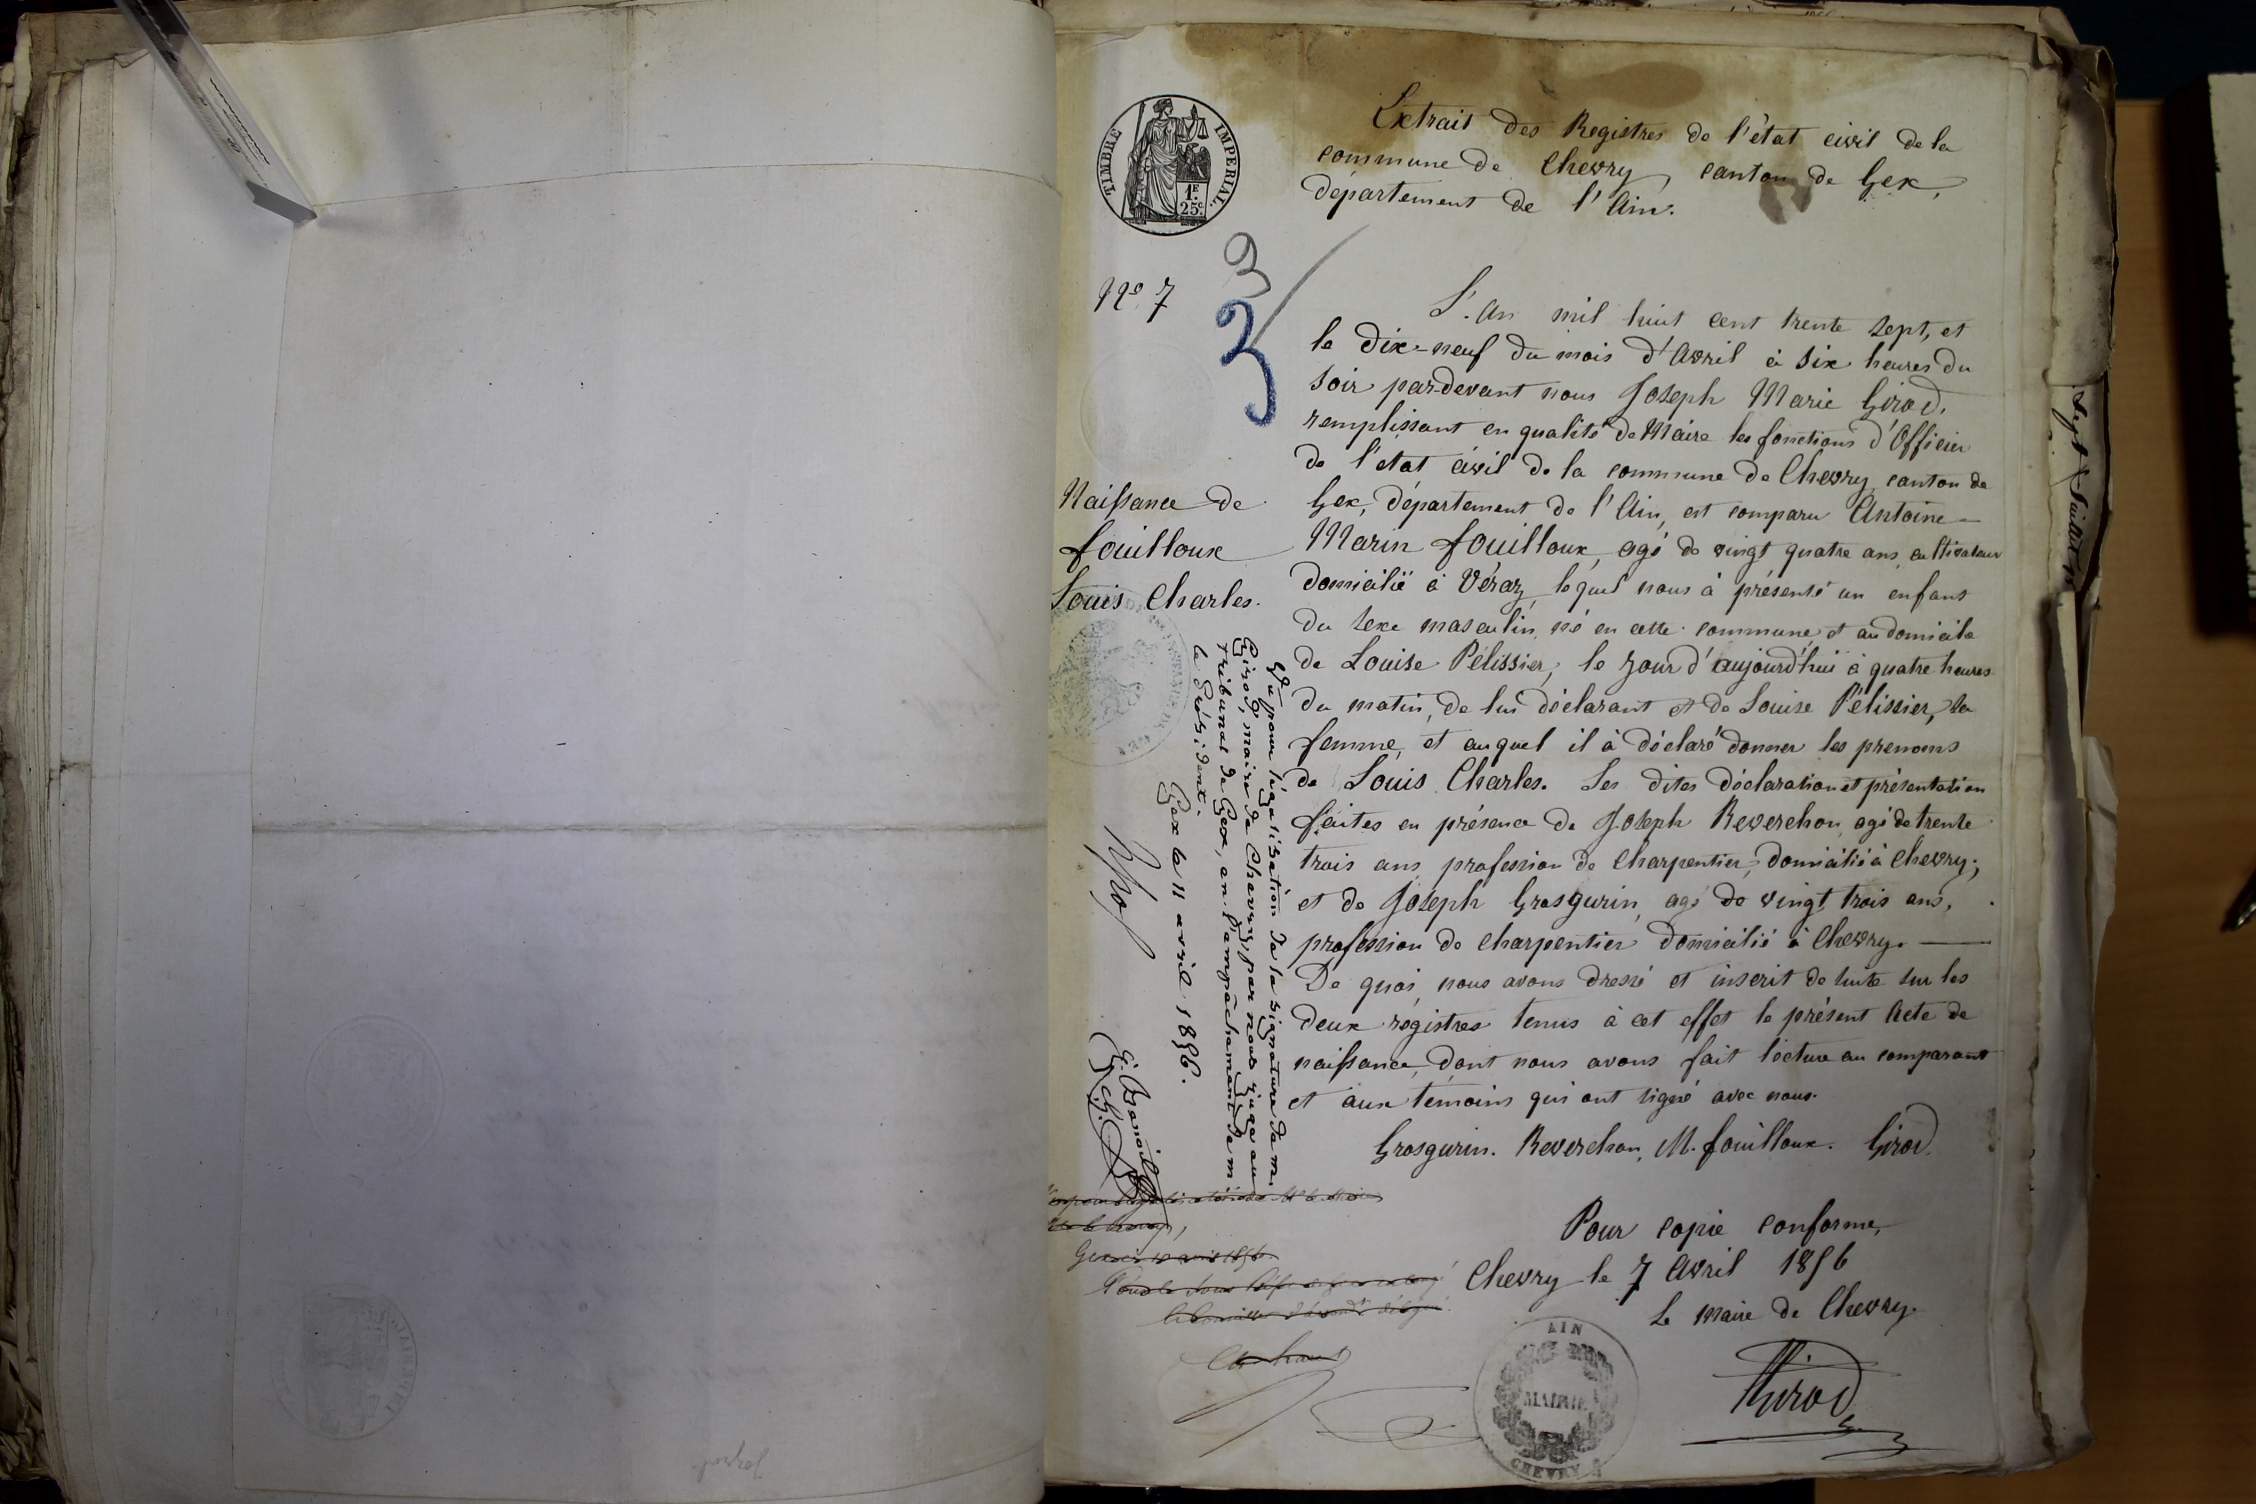 TIMBRE IMPERIAL.
1F.
25c.
Extrait des Registres de l'état civil de la
commune de Chevry, canton de Gex,
département de l'Ain.
3
Nº 7
3
L'An mil huit cent trente sept, et
le dix-neuf du mois d'Avril à six heures du
soir par-devant nous Joseph Marie Girod,
remplissant en qualité de Maire les fonctions d'Officier
de l'etat civil de la commune de Chevry canton de
Gex, département de l'Ain, est comparu Antoine
Marin fouilloux, agé de vingt quatre ans, cultivateur
domicilié à Véraz, lequel nous à présenté un enfant
du sexe masculin, né en cette commune et au domicile
de Louise Pélissier, le jour d'aujourd'hui à quatre heures
du matin, de lui déclarant et de Louise Pélissier, sa
femme, et auquel il à déclaré donner les prenoms
de Louis Charles. Les dites déclaration et présentation
faites en présence de Joseph Reverchon, agé de trente
trois ans, profession de Charpentier, domicilié à Chevry,
et de Joseph Grosgurin, agé de vingt trois ans,
profession de charpentier domicilié à Chevry.
De quoi, nous avons dressé et inscrit de suite sur les
deux régistres tenus à cet effet le présent Acte de
naissance, dont nous avons fait lecture au comparant
et aux témoins qui ont signé avec nous.
Grosgurin. Reverchon, M. fouilloux. Girod.
Pour copie conforme,
Chevry le 7 Avril 1856
Le maire de Chevry.
Girod
AIN
MAIRIE
CHEVRY
Naissance de
fouilloux
Louis Charles.
Vu pour légalisation de la signature de m.
Girod, maire de Chevry, par nous juge au
tribunal de Gex, en l'empêchement de m
le Président.
Gex le 11 avril 1856.